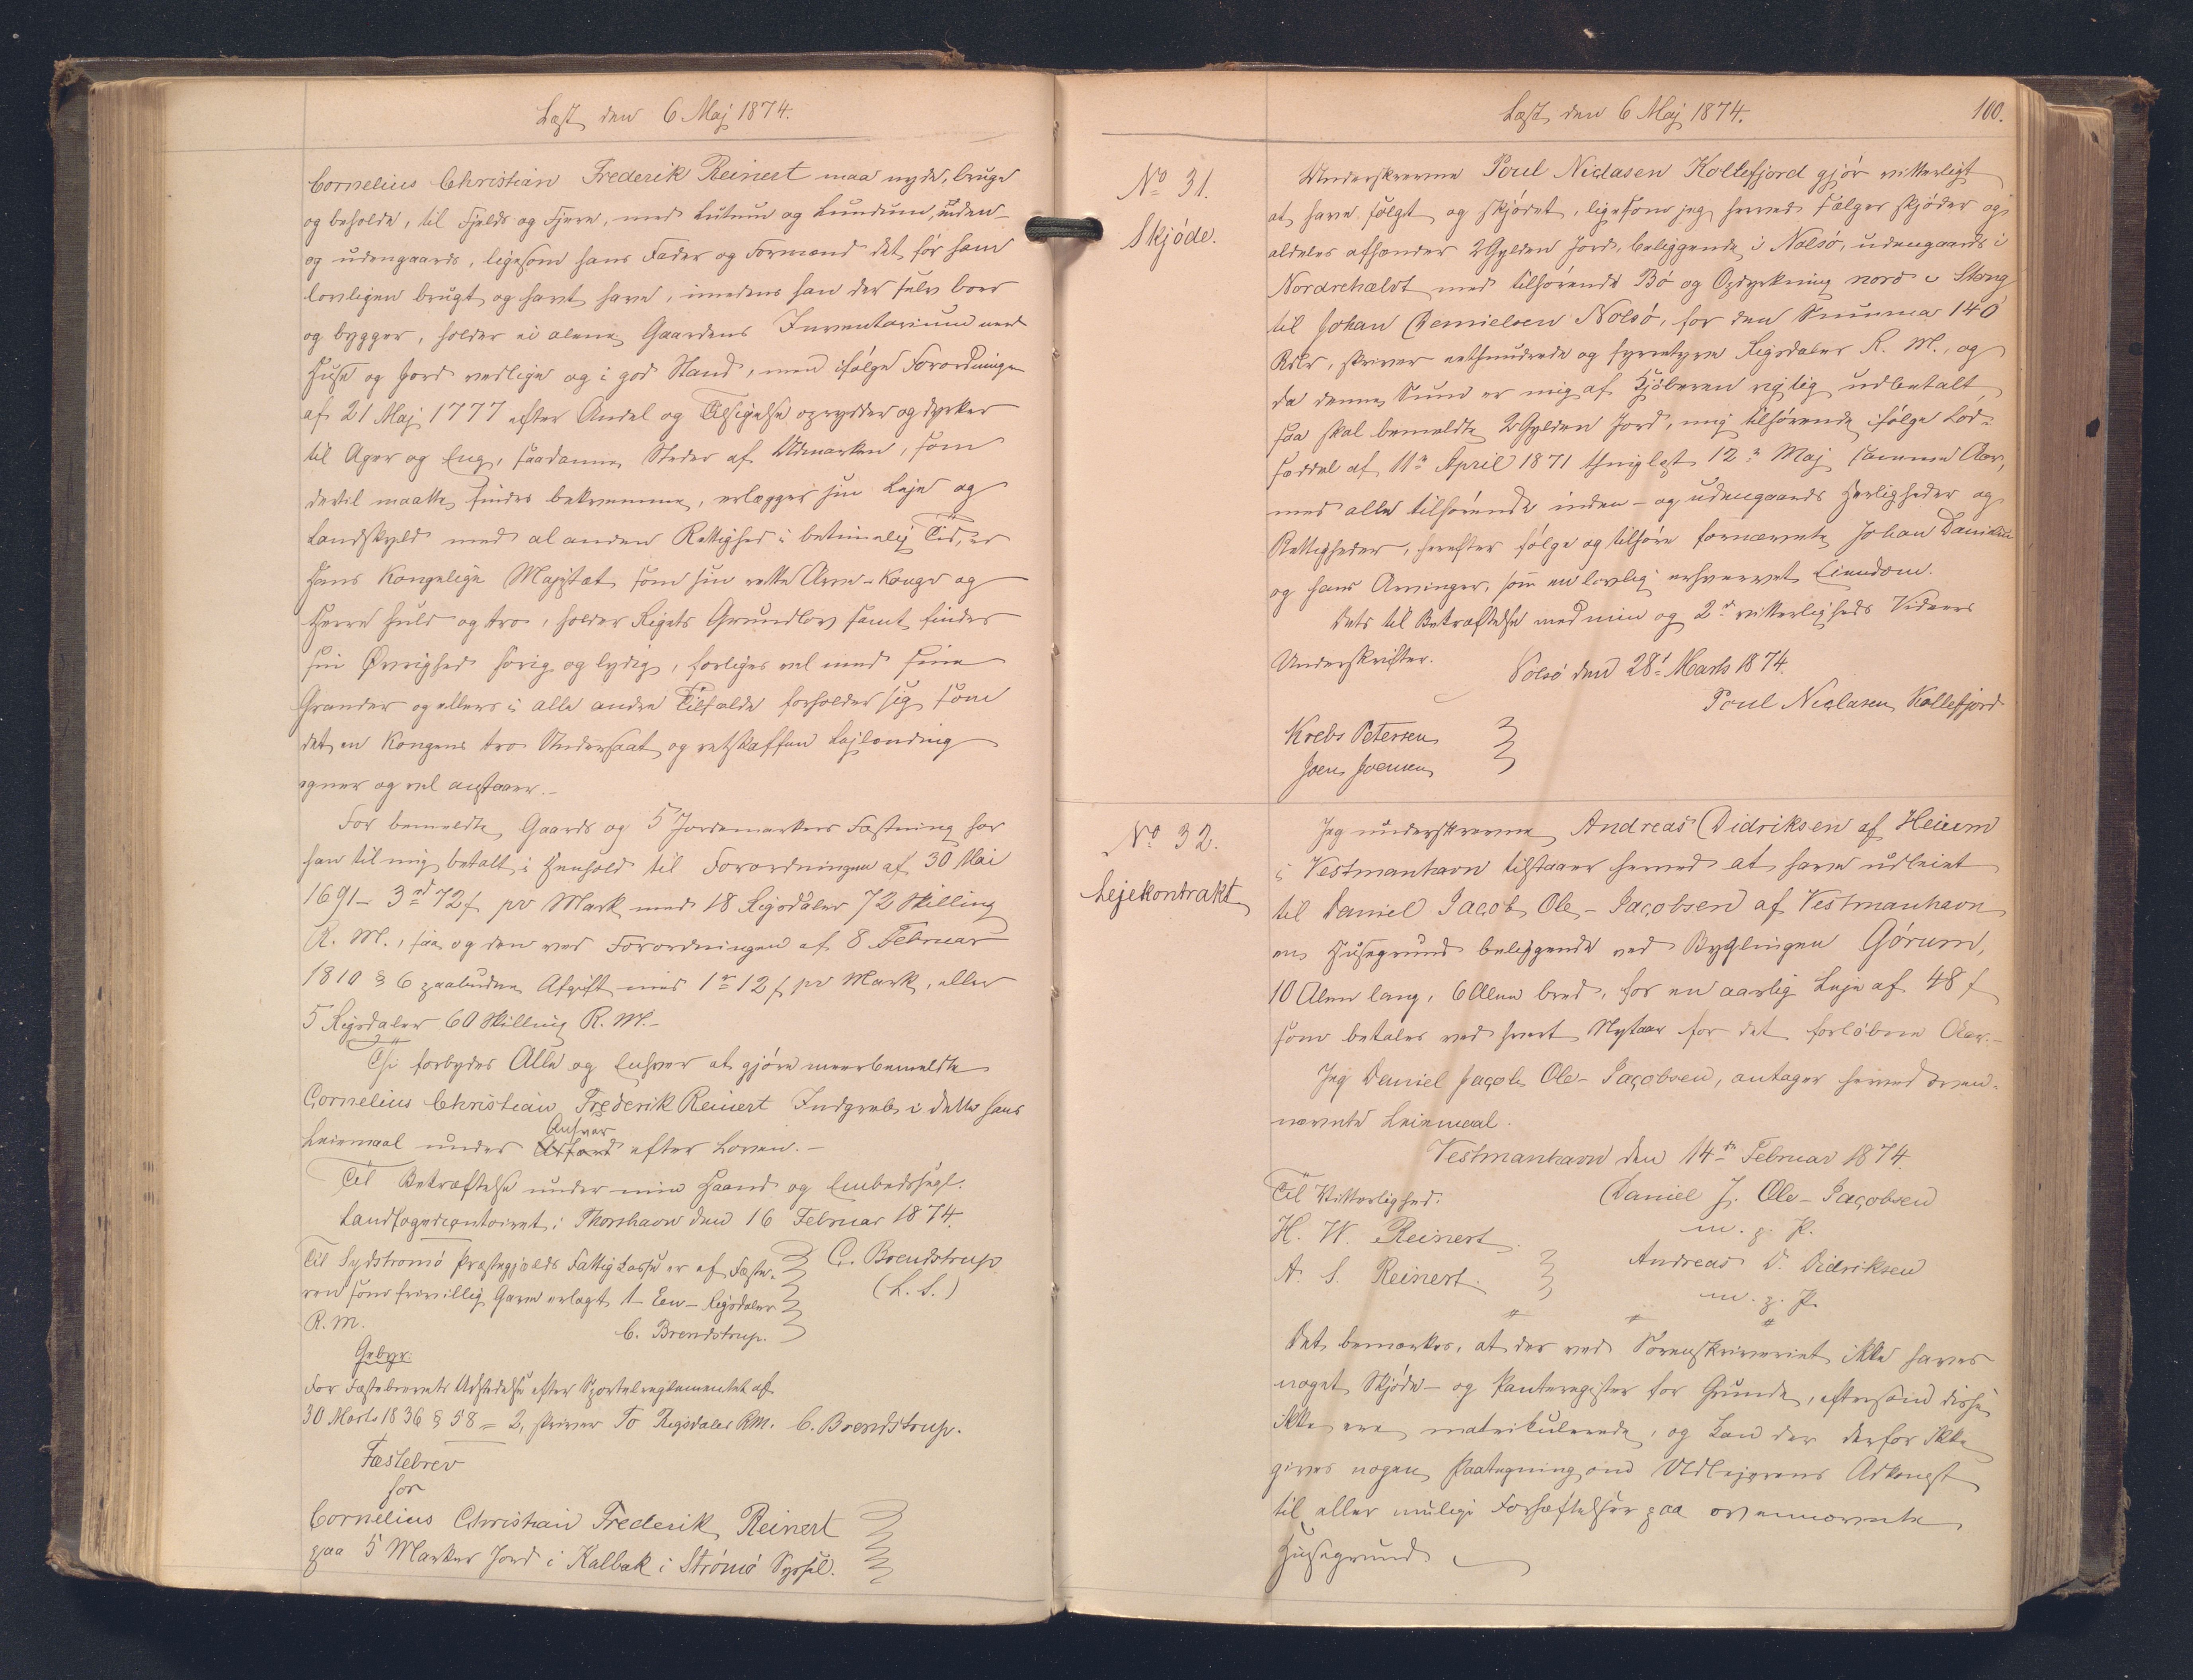 Læst den 6 Maj 1874.
Cornelius Christian Frederik Reinert maa nyde, bruge
og beholde, til Fjelds og Fjære, med Luttum og Lundum, inden-
og udengaards, ligesom hans Fader og Formænd det før ham
lovligen brugt og havt have, imedens han der selv boer
og bygger, holder ei alene Gaardens Inventarium med
Huse og Jord vedlige og i god Stand, men ifølge Forordningen
af 21 Maj 1777 efter Andel og Tilsigelse oprydder og dyrker
til Ager og Eng, saadanne Steder af Udmarken, som
dertil maatte findes bekvemme, erlægger sin Leje og
Landskyld med al anden Rettighed i betimelig Tid, er
Hans Kongelige Majestæt som sin rette Arve-Konge og
Herre huld og tro, holder Rigets Grundlov samt findes
sin Øvrighed hørig og lydig, forliges vel med sine
Grander og ellers i alle andre Tilfælde forholder sig som
det en Kongens tro Undersaat og retskaffen Lejlending
egner og vel anstaaer.-
For bemeldte Gaards og 5 Jordemarkers Fæstning har
han til mig betalt, i Henhold til Forordningen af 30 Mai
1691 - 3 rd 72 f pr Mark med 18 Rigsdaler 72 Skilling
R. M., saa og den ved Forordningen af 8 Februar
1810 § 6 paabudne Afgift med 1 rd 12 f pr Mark, eller
5 Rigsdaler 60 Skilling R. M.-
Thi forbydes Alle og Enhver at gjøre meerbemeldte
Cornelius Christian Frederik Reinert Indgreb i dette hans
Ansvar
Leiemaal under efter Loven.-
Til Bekræftelse under min Haand og Embedssegl.
Landfogedcontoiret i Thorshavn den 16 Februar 1874.
Til Sydstromø Præstegjælds Fattigkasse er af Fæste-
C. Brendstrup
ren som frivillig Gave erlagt 1 - Een - Rigsdaler
(L. S.)
R. M.
C. Brendstrup.
Gebyr:
For Fæstebrevets Udstedelse efter Sportelreglementet af
30 Marts 1836 § 58 = 2, skriver To Rigsdaler RM. C. Brendstrup.
Fæstebrev
for
Cornelius Christian Frederik Reinert
paa 5 Marker Jord i Kalbak i Strømø Syssel.
Læst den 6 Maj 1874.
100.
No 31.
Skjøde.
Underskrevne Poul Niclasen Kollefjord gjør vitterligt
at have solgt og skjødet, ligesom jeg herved sælger skjøder og
aldeles afhænder 2 Gylden Jord, beliggende i Nolsø, udengaards i
Nordrehælvt med tilhørende Bø og Opdyrkning nord i Steng
til Johan Danielsen Nolsø, for den Summa 140
Rdlr, skriver eethundrede og fyrretyve Rigsdaler R. M., og
da denne Sum er mig af Kjøberen rigtig udbetalt,
saa skal bemeldte 2 Gylden Jord, mig tilhørende ifølge Lod-
seddel af 11te April 1871 thinglæst 12te Maj samme Aar,
med alle tilhørende inden- og udengaards Herligheder og
Rettigheder, herefter følge og tilhøre fornævnte Johan Danielsen
og hans Arvinger, som en lovlig erhvervet Eiendom.
Dets til Bekræftelse med min og 2de vitterligheds Vidners
Underskrifter.
Nolsø den 28de Marts 1874.
Poul Niclasen Kollefjord
Krebs Petersen
Joen Joensen
No 32.
Lejekontrakt
Jeg underskrevne Andreas Didriksen af Heium
i Vestmanhavn tilstaaer herved at have udleiet
til Daniel Jacob Ole-Jacobsen af Vestmanhavn
en Husegrund beliggende ved Byglingen Górum,
10 Alen lang, 6 Alen bred, for en aarlig Leje af 48 f
som betales ved hvert Nytaar for det forløbne Aar.-
Jeg Daniel Jacob Ole-Jacobsen, antager herved oven-
nævnte Leiemaal.
Vestmanhavn den 14de Februar 1874.
Til Vitterlighed.
Daniel J. Ole-Jacobsen
H. W. Reinert.
m. p. P.
A. S. Reinert.
Andreas D. Didriksen
m. p. P.
Det bemærkes, at der ved Sorenskriveriet ikke haves
noget Skjøde- og Panteregister for Grunde, eftersom disse
ikke ere matrikulerede, og kan der derfor ikke
gives nogen Paategning om Udlejerens Adkomst
til eller mulige Forhæftelser paa ovennævnte
Husegrund